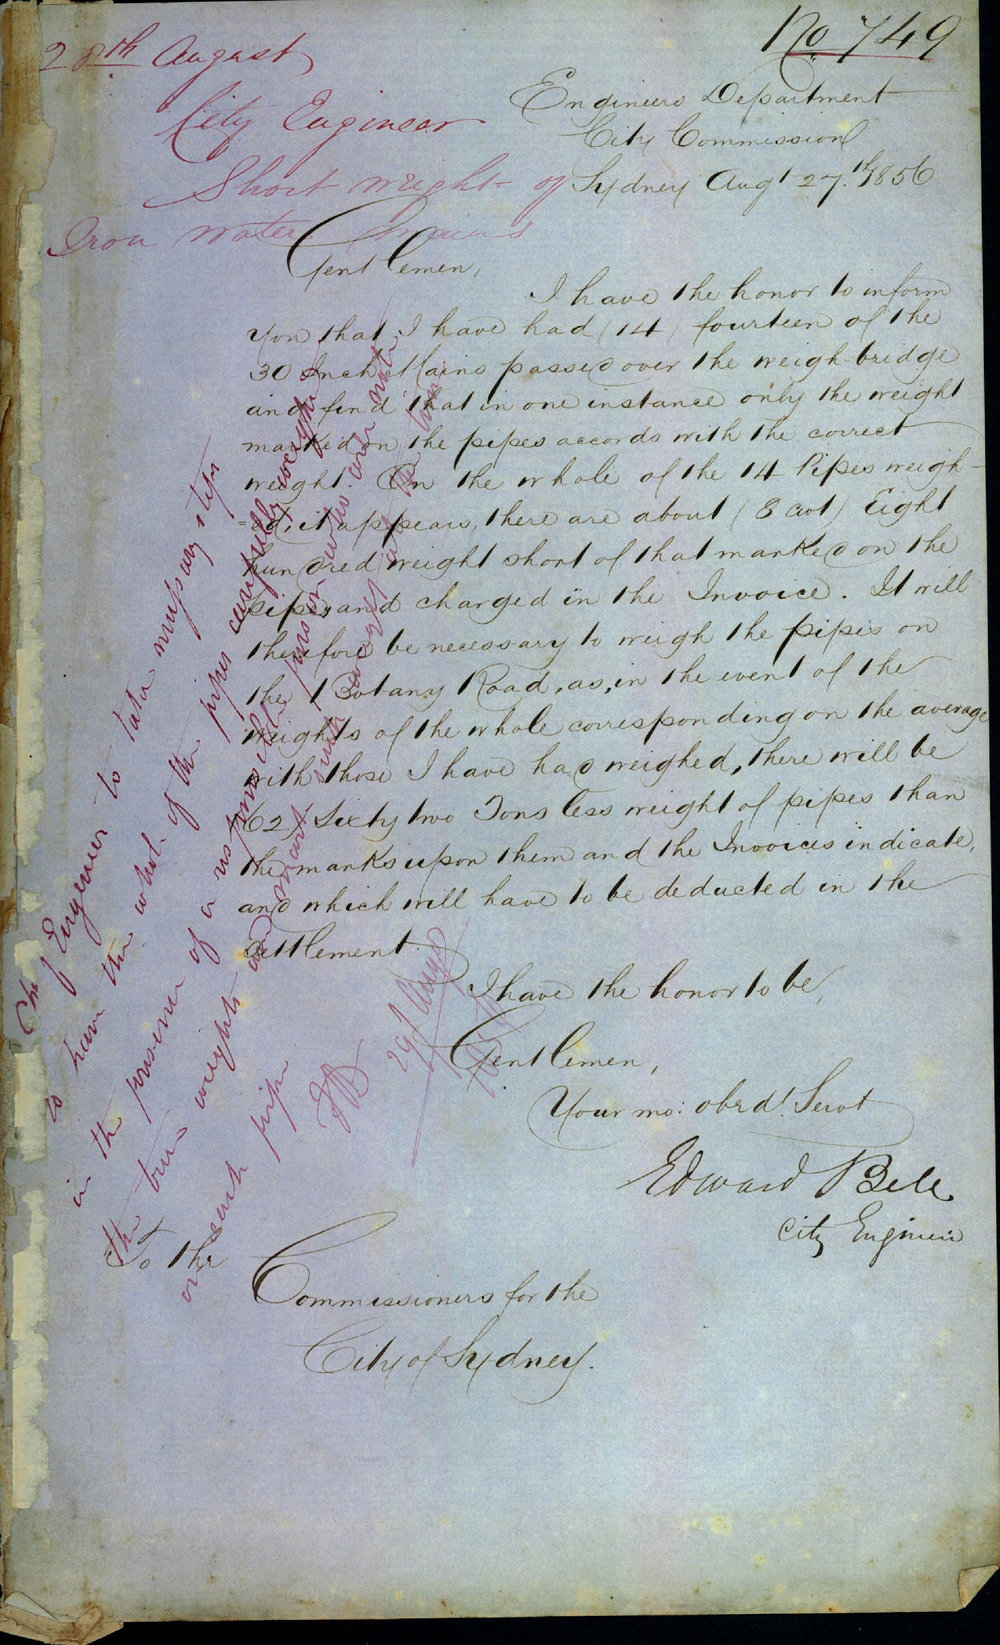 No 749
28th August
City Engineer
Short weight of
Iron Water Mains
Engineers Department
City Commission
Sydney Augt 27th 1856
Gentlemen,
I have the honor to inform
you that I have had (14) fourteen of the
30 Inch Mains passed over the weigh bridge
and find that in one instance only the weight
marked on the pipes accords with the correct
weight. On the whole of the 14 Pipes weigh-
=ed, it appears, there are about (8 cwt) Eight
hundred weight short of that marked on the
pipes and charged in the Invoice. It will
therefore be necessary to weigh the pipes on
the Botany Road, as, in the event of the
weights of the whole corresponding on the average
with those I have had weighed, there will be
(62) Sixty two Tons less weight of pipes than
the marks upon them and the Invoices indicate,
and which will have to be deducted in the
settlement.
I have the honor to be,
Gentlemen,
Your mo: obed! Servt
Edward Bell
City Engineer
To the
Commissioners for the
City of Sydney.
The Engineer to take necessary steps
to have the whole of the pipes carefully weighed
in the presence of a responsible person who will note
the true weights and mark such weight
on each pipe
29 Augt